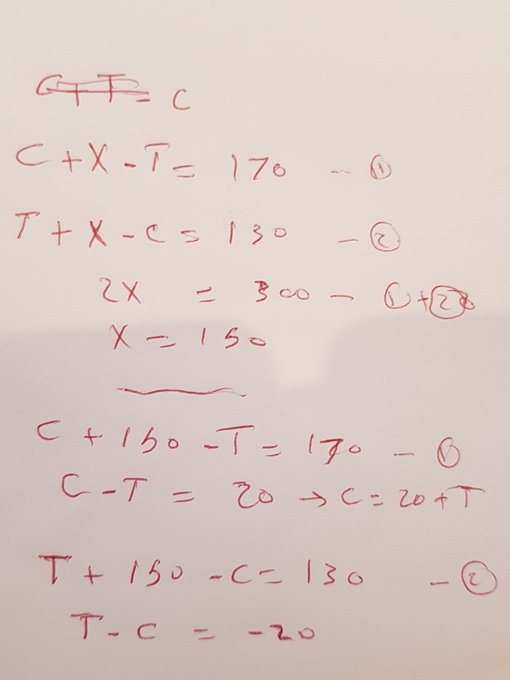 C + T = C
C + X - T = 170 - ①
T + X - C = 130 - ②
2X = 300 - ① + ②
X = 150
C + 150 - T = 170 - ①
C - T = 20 → C = 20 + T
T + 150 - C = 130 - ②
T - C = -20